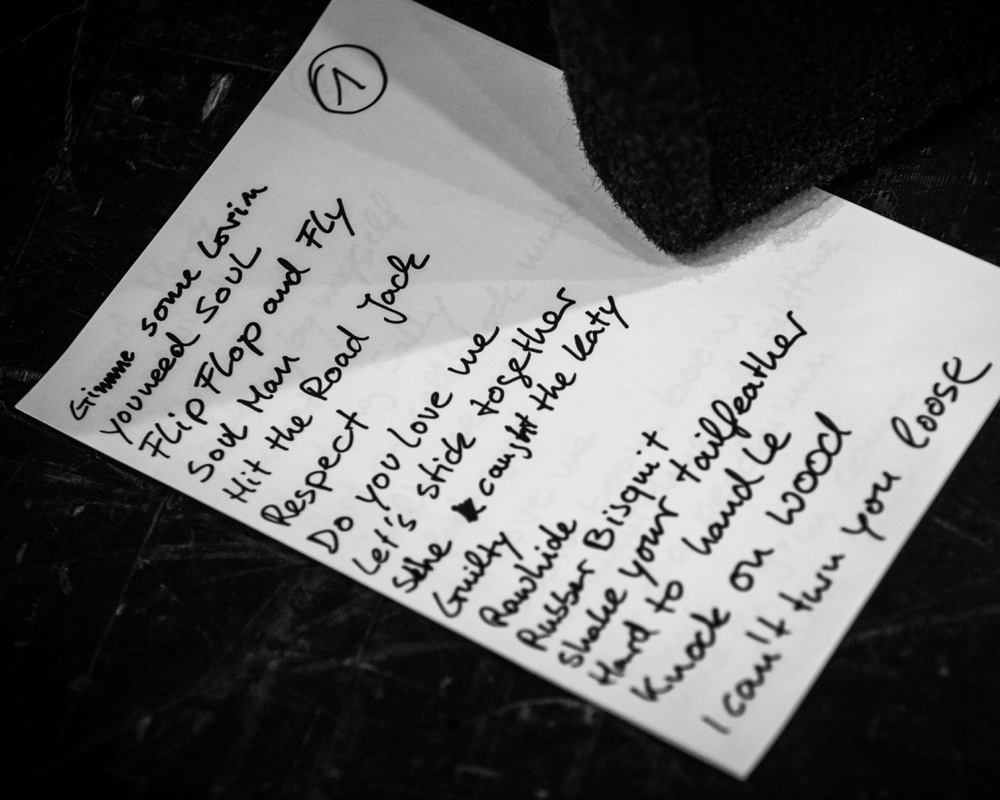 1
Gimme some Lovin
you need SOUL
Flip Flop and Fly
Soul Man
Hit the Road Jack
Respect
Do you Love me
Let's stick together
She caught the Katy
Guilty
Rawhide
Rubber Bisquit
shake your tailfeather
Hard to handle
Knock on wood
I can't turn you loose